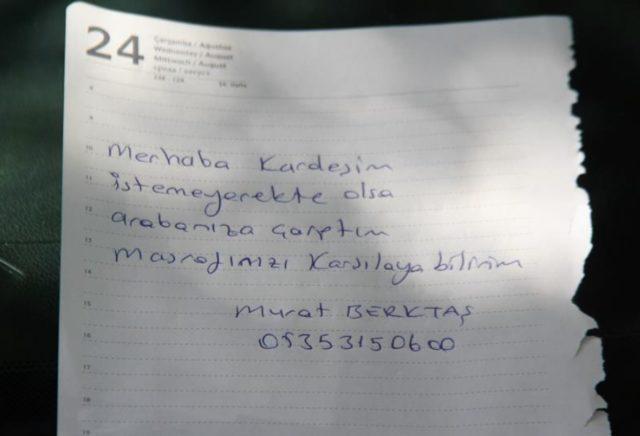 24
Çarşamba / Ağustos
Wednesday / August
Mittwoch / August
среда / август
9
10
Merhaba Kardeşim
11
istemeyerekte olsa
12
arabanıza çarptım
13
masrafınızı Karşılaya bilirim
14
15
Murat BERKTAŞ
16
05353150600
17
18
19